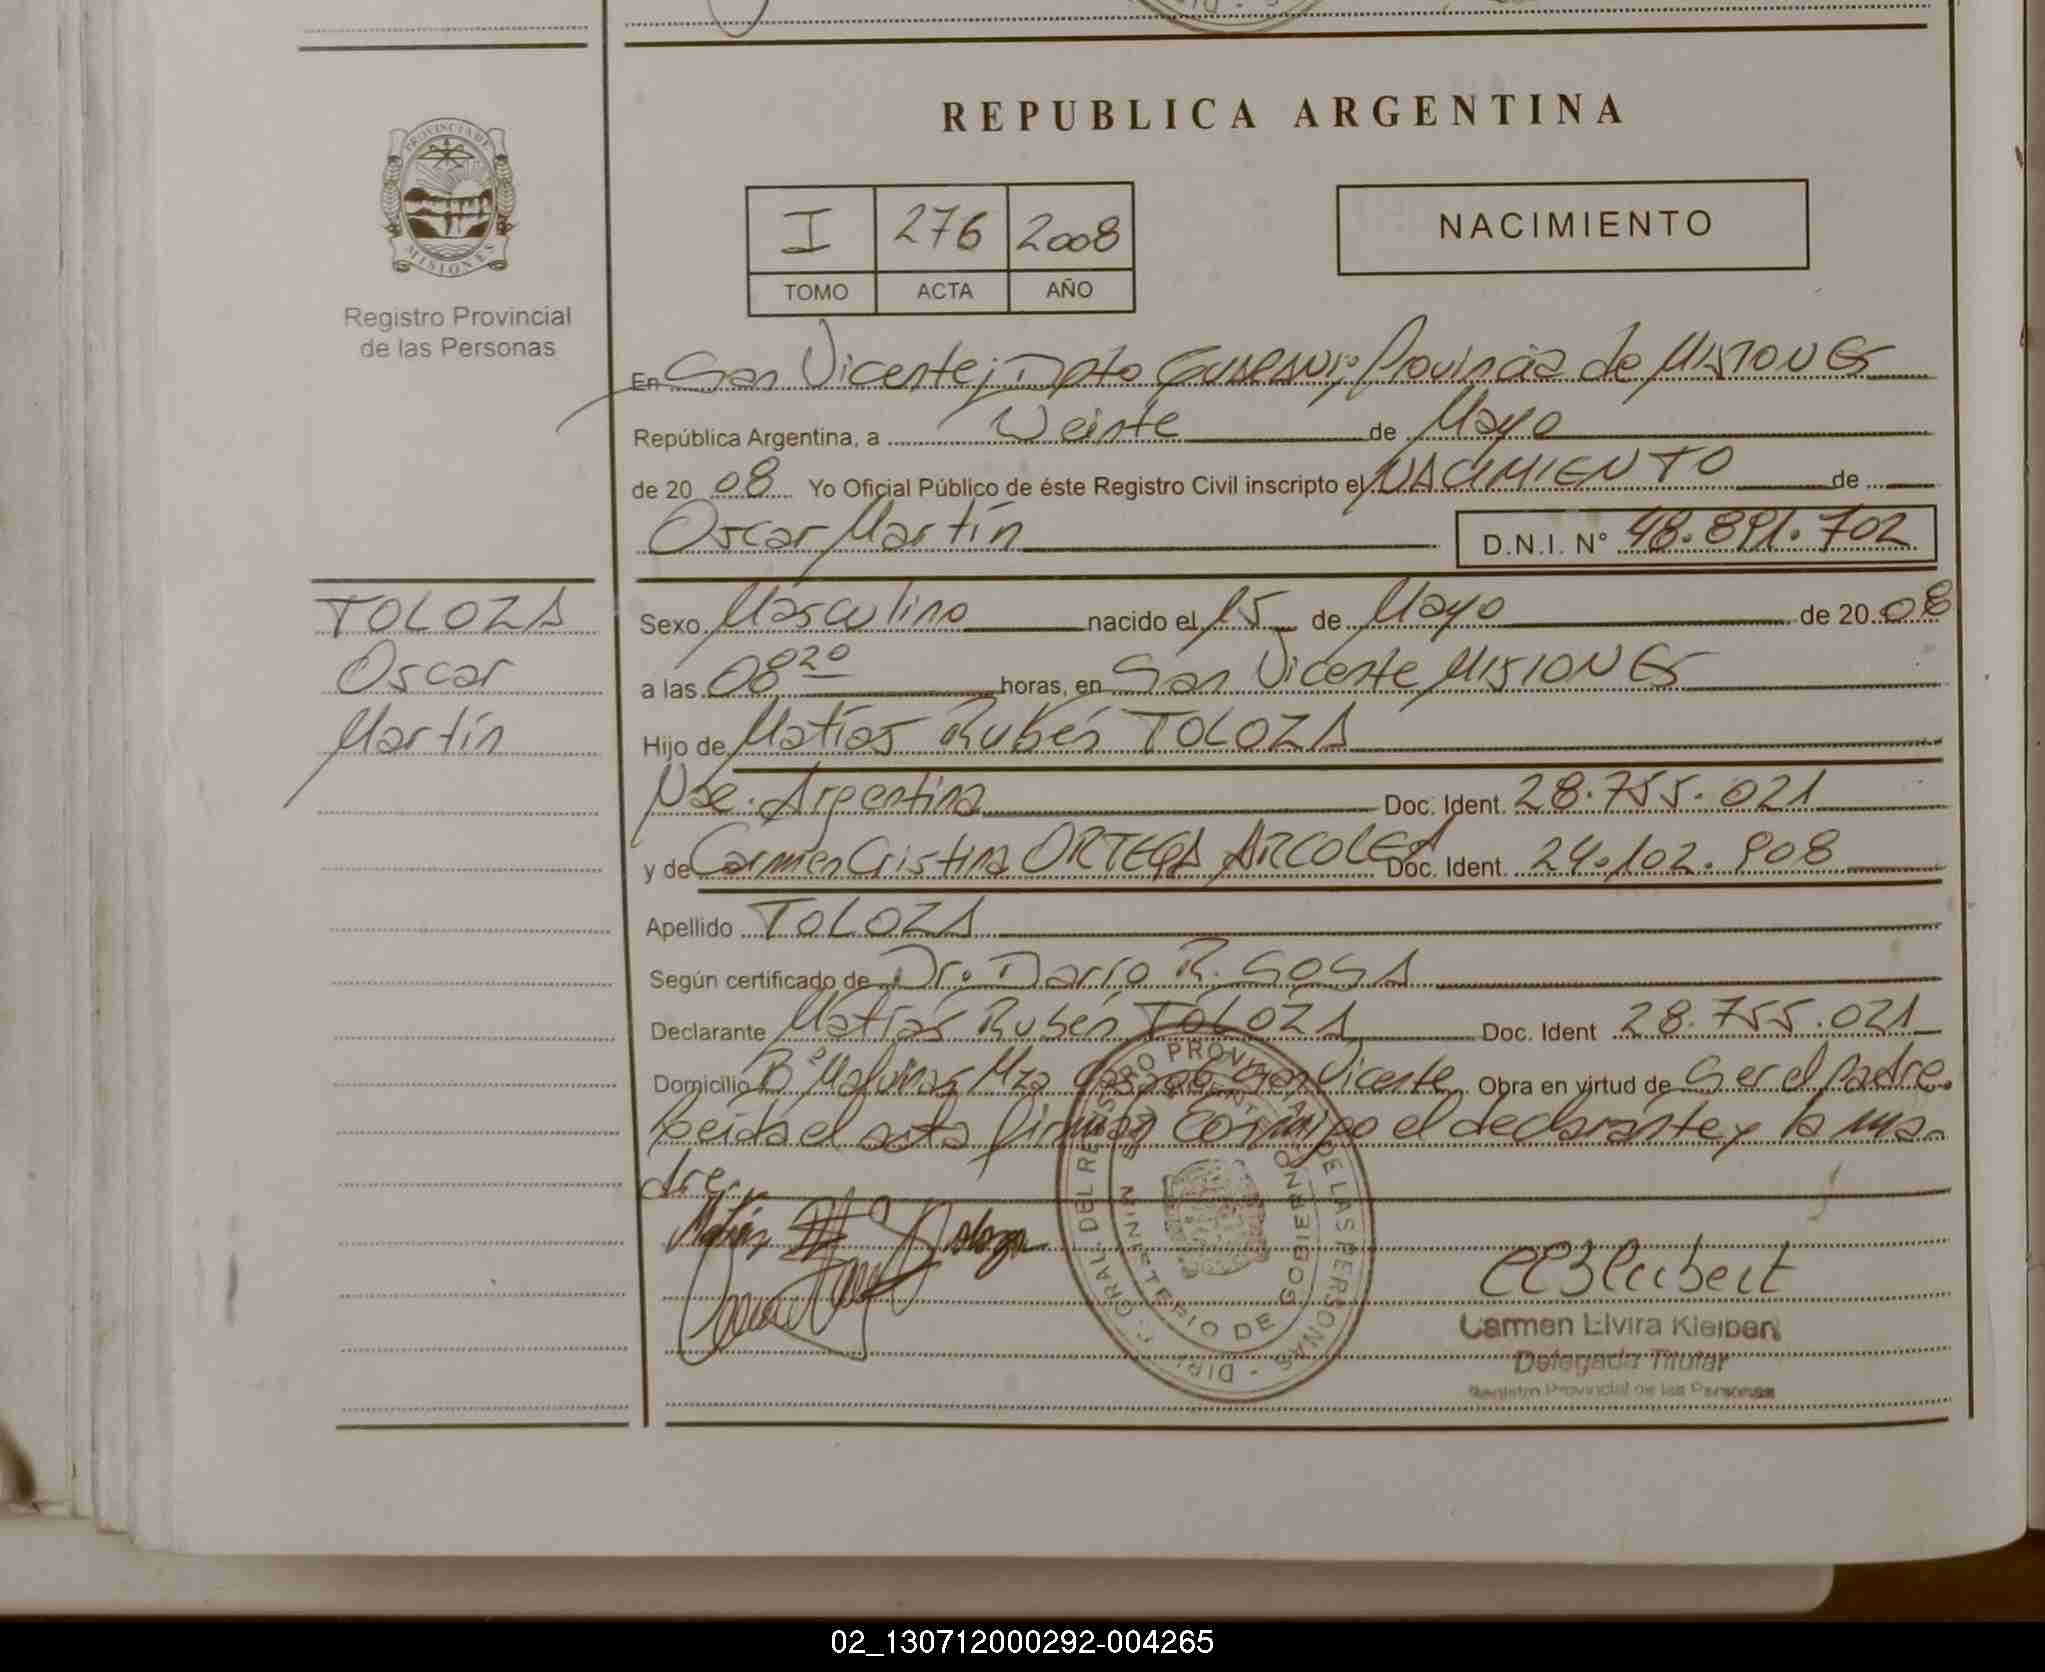 PROVINCIA DE
MISIONES
Registro Provincial
de las Personas
TOLOZA
Oscar
Martín
REPUBLICA ARGENTINA
I 276 2008
TOMO ACTA AÑO
NACIMIENTO
En San Vicente, Dpto GUARANI, Provincia de MISIONES
República Argentina, a Veinte de Mayo
de 20 08 Yo Oficial Público de éste Registro Civil inscripto el NACIMIENTO de
Oscar Martín D.N.I. N° 48.891.702
Sexo Masculino nacido el 15 de Mayo de 20 08
a las 08 20 horas, en San Vicente MISIONES
Hijo de Matías Rubén TOLOZA
Nac. Argentina Doc. Ident. 28.755.021
y de Carmen Cristina ORTEGA ARCOLEA Doc. Ident. 24.102.908
Apellido TOLOZA
Según certificado de Dr. Darío R. SOSA
Declarante Matías Rubén TOLOZA Doc. Ident 28.755.021
Domicilio B° Malvinas Mza San Vicente Obra en virtud de Ser el padre.
Leida el acta firman Conmigo el declarante y la ma-
dre.
Matías Toloza
DIR. GRAL. DEL REGISTRO PROVINCIAL DE LAS PERSONAS
MINISTERIO DE GOBIERNO
Carmen Elvira Kleibert
Delegada Titular
Registro Provincial de las Personas
02_130712000292-004265